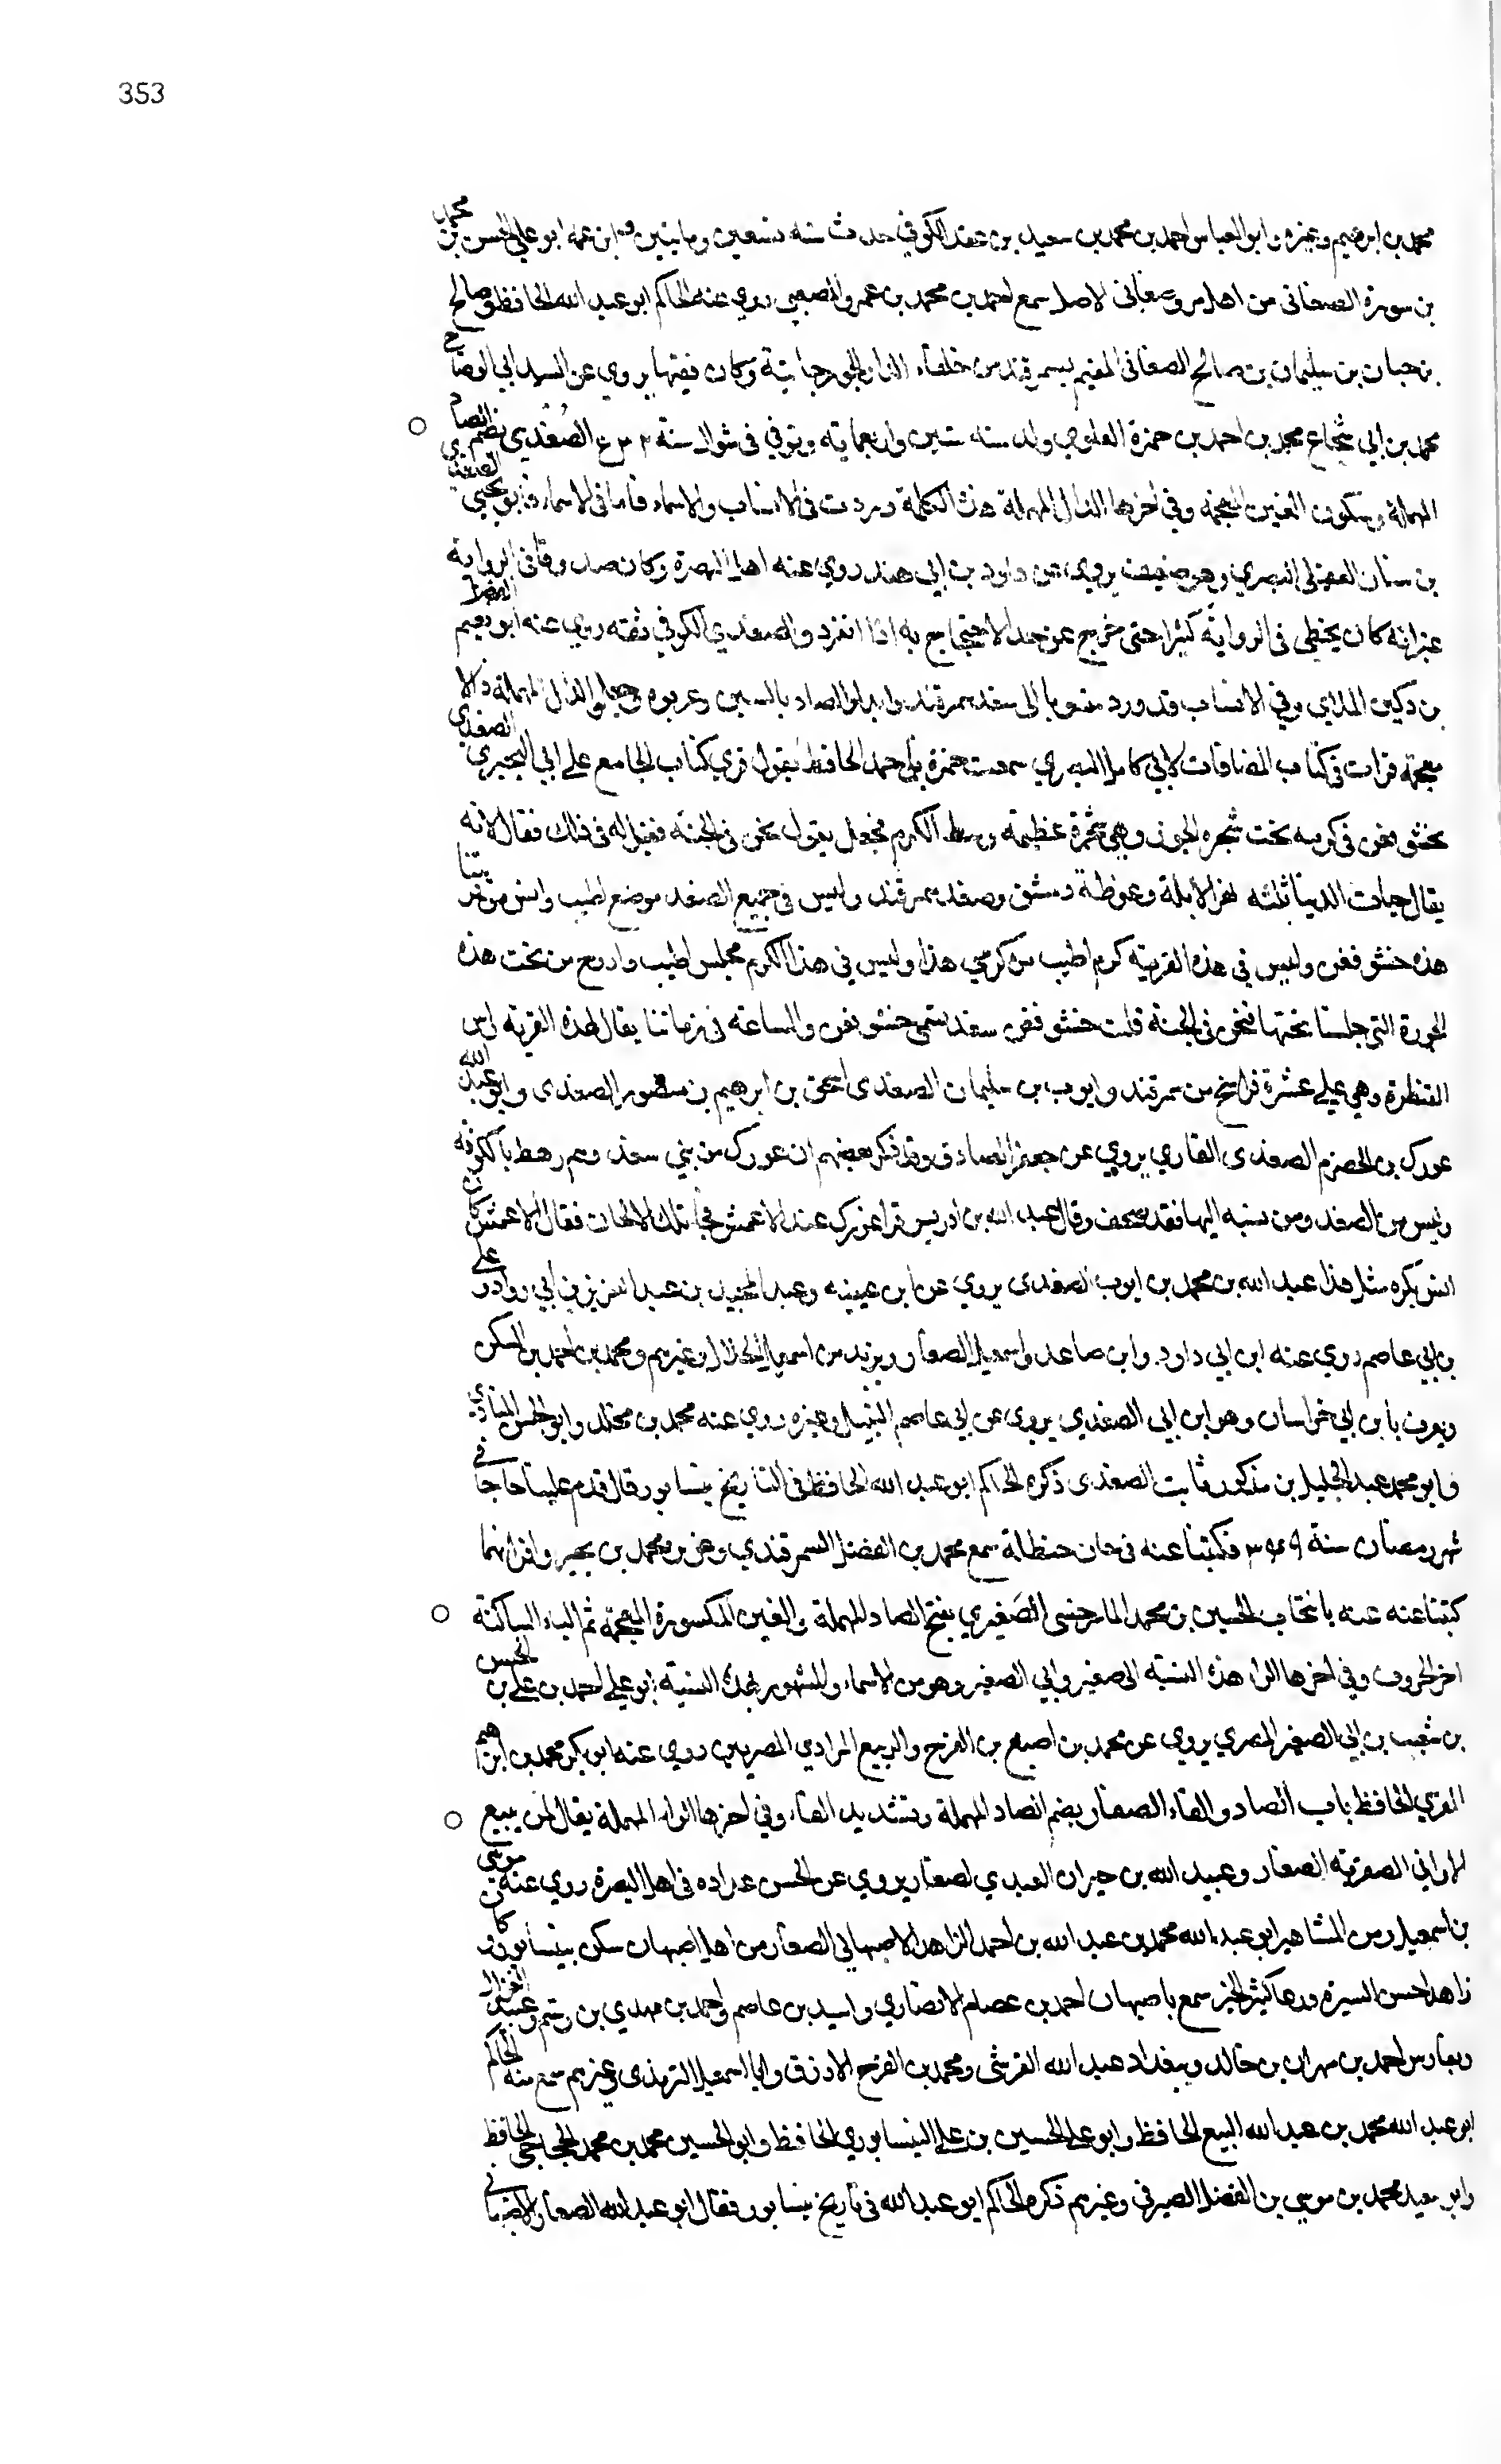 353
محمد بن ابرهيم وغيره وابو العباس احمد بن محمد بن سعيد بن عقد الكوفي حدث سنه تسعين وماىتين وابن عمه ابو علي الحسن بن محمد
بن سورة الصغانى من اهل مرو صغانى الاصل سمع احمد بن محمد بن عمرو المصعبى روي عنه الحاكم ابو عبد الله الحافظ وصالح
بن حيان بن سليمان بن صالح الصغانى المقيم بسمرقند من خلفاء الدار الجوزجانية وكان فقيها يروي عن السيد ابي الوضاح
محمد بن ابي شجاع محمد بن احمد بن حمزة العلوي ولد سنه ستين واربعمايه وتوفي فى شوال سنة الصُغْدي بضم الصاد
المهملة وسكون الغين المعجمة وفي اخرها الدال المهملة هذه الكلمة وردت فى الانساب والاسماء فاما فى الاسماء فابو يحيى الصغدي
بن سنان العقيلي البصري وهو ضعيف يروي عن داود بن ابي هند روي عنه اهل البصرة وكان صدوقا فى الرواية
غير انه كان يخطى فى الرواية كثيرا حتى خرج عن حد الاحتجاج به اذا انفرد والصغدي الكوفي ثقه روي عنه ابو نعيم الفضل
بن دكين الملاي وفي الانساب قد ورد منسوبا الى سغد سمرقند وابدلوا الصاد بالسين وعربوه وجعلوا الدال المهملة ذالا
معجمة قرات فى كتاب المضافات لابي كامل البصري سمعت حمزة بن احمد الحافظ يقول قري كتاب الجامع على ابي البحيري الصغدي
بخشوفغن فى كرمه تحت شجره الجوز وهي شجرة عظيمة وسط الكرم فجعل يقول نحن فى الجنة فقيل له فى ذلك فقال لانه
يقال جنات الدنيا ثلثه نهر الابلة وغوطة دمشق وصغد سمرقند وليس فى جميع الصغد موضع اطيب وانس من قريتنا
هذه خشوفغن وليس فى هذه القرية كرم اطيب من كرمي هذا وليس في هذا الكرم مجلس اطيب واروح من تحت هذه
الجوزة التى جلسنا تحتها فنحن فى الجنة قلت خشوفغن سغد يسمى خشوفغن والساعه فى زماننا يقال لهذه القريه راس
القنطرة وهي علي عشرة فراسخ من سمرقند وايوب بن سليمان الصغدى اسحق بن ابرهيم بن منصور الصغدى وابو عبد الله
عورك بن الخضرم الصغدى القاري يروي عن جعفر الصادق وقد ذكر بعضهم ان عورك من بني سعد وهم رهط بالكوفه
وليس من الصغد ومن نسبه اليها فقد صحف وقال عبد الله بن ادريس قرا عورك عند الاعمش فجا بتلك الالحان فقال الاعمش كان
انس يكره مثل هذا عبد الله بن محمد بن ايوب الصغدى يروي عن ابن عيينه وعبد المجيد بن عبد العزيز بن ابي رواد وعلي
بن ابي عاصم روي عنه ابن ابي داود وابن صاعد واسمعيل الصفار ويزيد بن اسمعيل الخلال وغيرهم ومحمد بن احمد بن السكن
ويعرف بابن ابي خراسان وهو ابن ابي الصغدي يروي عن ابي عاصم النبيل وغيره روي عنه محمد بن مخلد وابو الحسن المنادي
وابو محمد عبد الجليل بن مذكور ثابت الصغدى ذكره الحاكم ابو عبد الله الحافظ فى التاريخ نيسابور قال قدم علينا حاجا في
شهر رمضان سنة فكتبنا عنه فى خان حنظلة سمع محمد بن الفضل السمرقندي وعمر بن محمد بن بجير واقرانهما
كتبنا عنه بانتخاب الحسين بن محمد الماسرجسى الصَغيري بفتح الصاد المهملة والغين المكسورة المعجمة ثم الياء الساكنة
اخر الحروف وفي اخرها الرا هذه النسبة الى صغير وابي الصغير وهو من الاسماء والمشهور بهذه النسبة ابو علي احمد بن علي بن الحسن
بن شعيب بن ابي الصغير المصري يروي عن محمد بن اصبغ بن الفرج والربيع المرادي المصريين روي عنه ابو بكر محمد بن ابرهيم
المقري الحافظ باب الصاد والفاء الصفار بضم الصاد المهملة وتشديد الفاء وفي اخرها الراء المهملة يقال لمن يبيع
الاواني الصفرية الصفار وعبيد الله بن حيران العبدي الصفار يروي عن الحسن عداده فى اهل البصرة روي عنه موسى
بن اسمعيل ومن المشاهير ابو عبد الله محمد بن عبد الله بن احمد الزاهد الاصبهاني الصفار من اهل اصبهان سكن نيسابور وكان
زاهدا حسن السيرة ورعا كثير الخير سمع باصبهان احمد بن عصام الانصاري واسيد بن عاصم واحمد بن مهدي بن رستم وعبيد الغزال
وبفارس احمد بن مهران بن خالد وببغداد عبد الله القرشى ومحمد بن الفرج الازرق وابا اسمعيل الترمذى وغيرهم سمع منه الحاكم
ابو عبد الله محمد بن عبد الله البيع الحافظ وابو علي الحسين بن علي النيسابوري الحافظ وابو الحسين محمد بن محمد الحجاجى الحافظ
وابو سعيد محمد بن موسي بن الفضل الصيرفي وغيرهم ذكره الحاكم ابو عبد الله فى تاريخ نيسابور فقال ابو عبد الله الصفار الاصبهاني